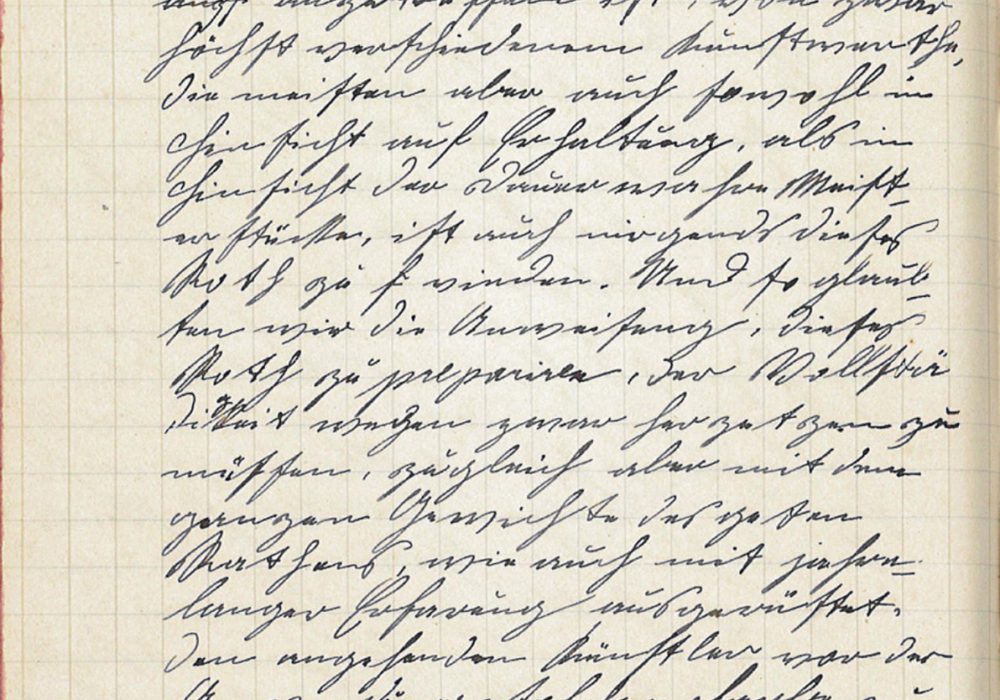 höchst verschiedenem Kunstwerthe,
die meisten aber auch sowohl in
Hinsicht auf Erhaltung, als in
Hinsicht der Dauer wahre Meist-
erstücke, ist auch nirgends dieses
Roth zu finden. Und so glaub-
ten wir die Anweisung, dieses
Roth zu prepariren, der Vollstä
digkeit wegen zwar hersetzen zu
müssen, zugleich aber mit dem
ganzen Gewichte des guten
Rathens, wie auch mit jahre-
langer Erfarung ausgerüstet.
den angehenden Künstler vor der